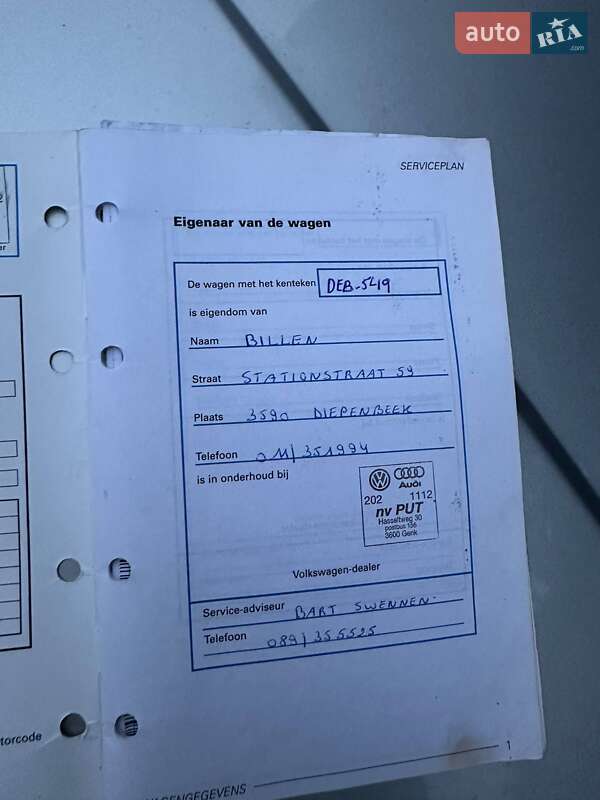 auto RIA.com
SERVICEPLAN
Eigenaar van de wagen
De wagen met het kenteken DEB-549
is eigendom van
Naam BILLEN
Straat STATIONSTRAAT 59
Plaats 3590 DIEPENBEEK
Telefoon 011/351994
is in onderhoud bij
Audi
202 1112
nv PUT
Hasseltweg 30
postbus 156
3600 Genk
Volkswagen-dealer
Service-adviseur BART SWENNEN
Telefoon 089/355525
torcode
1